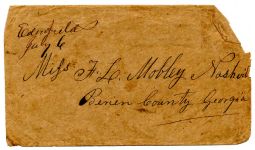 Edenfield
July 6
Miss F. L. Mobley Nashvil
Berien County Georgia